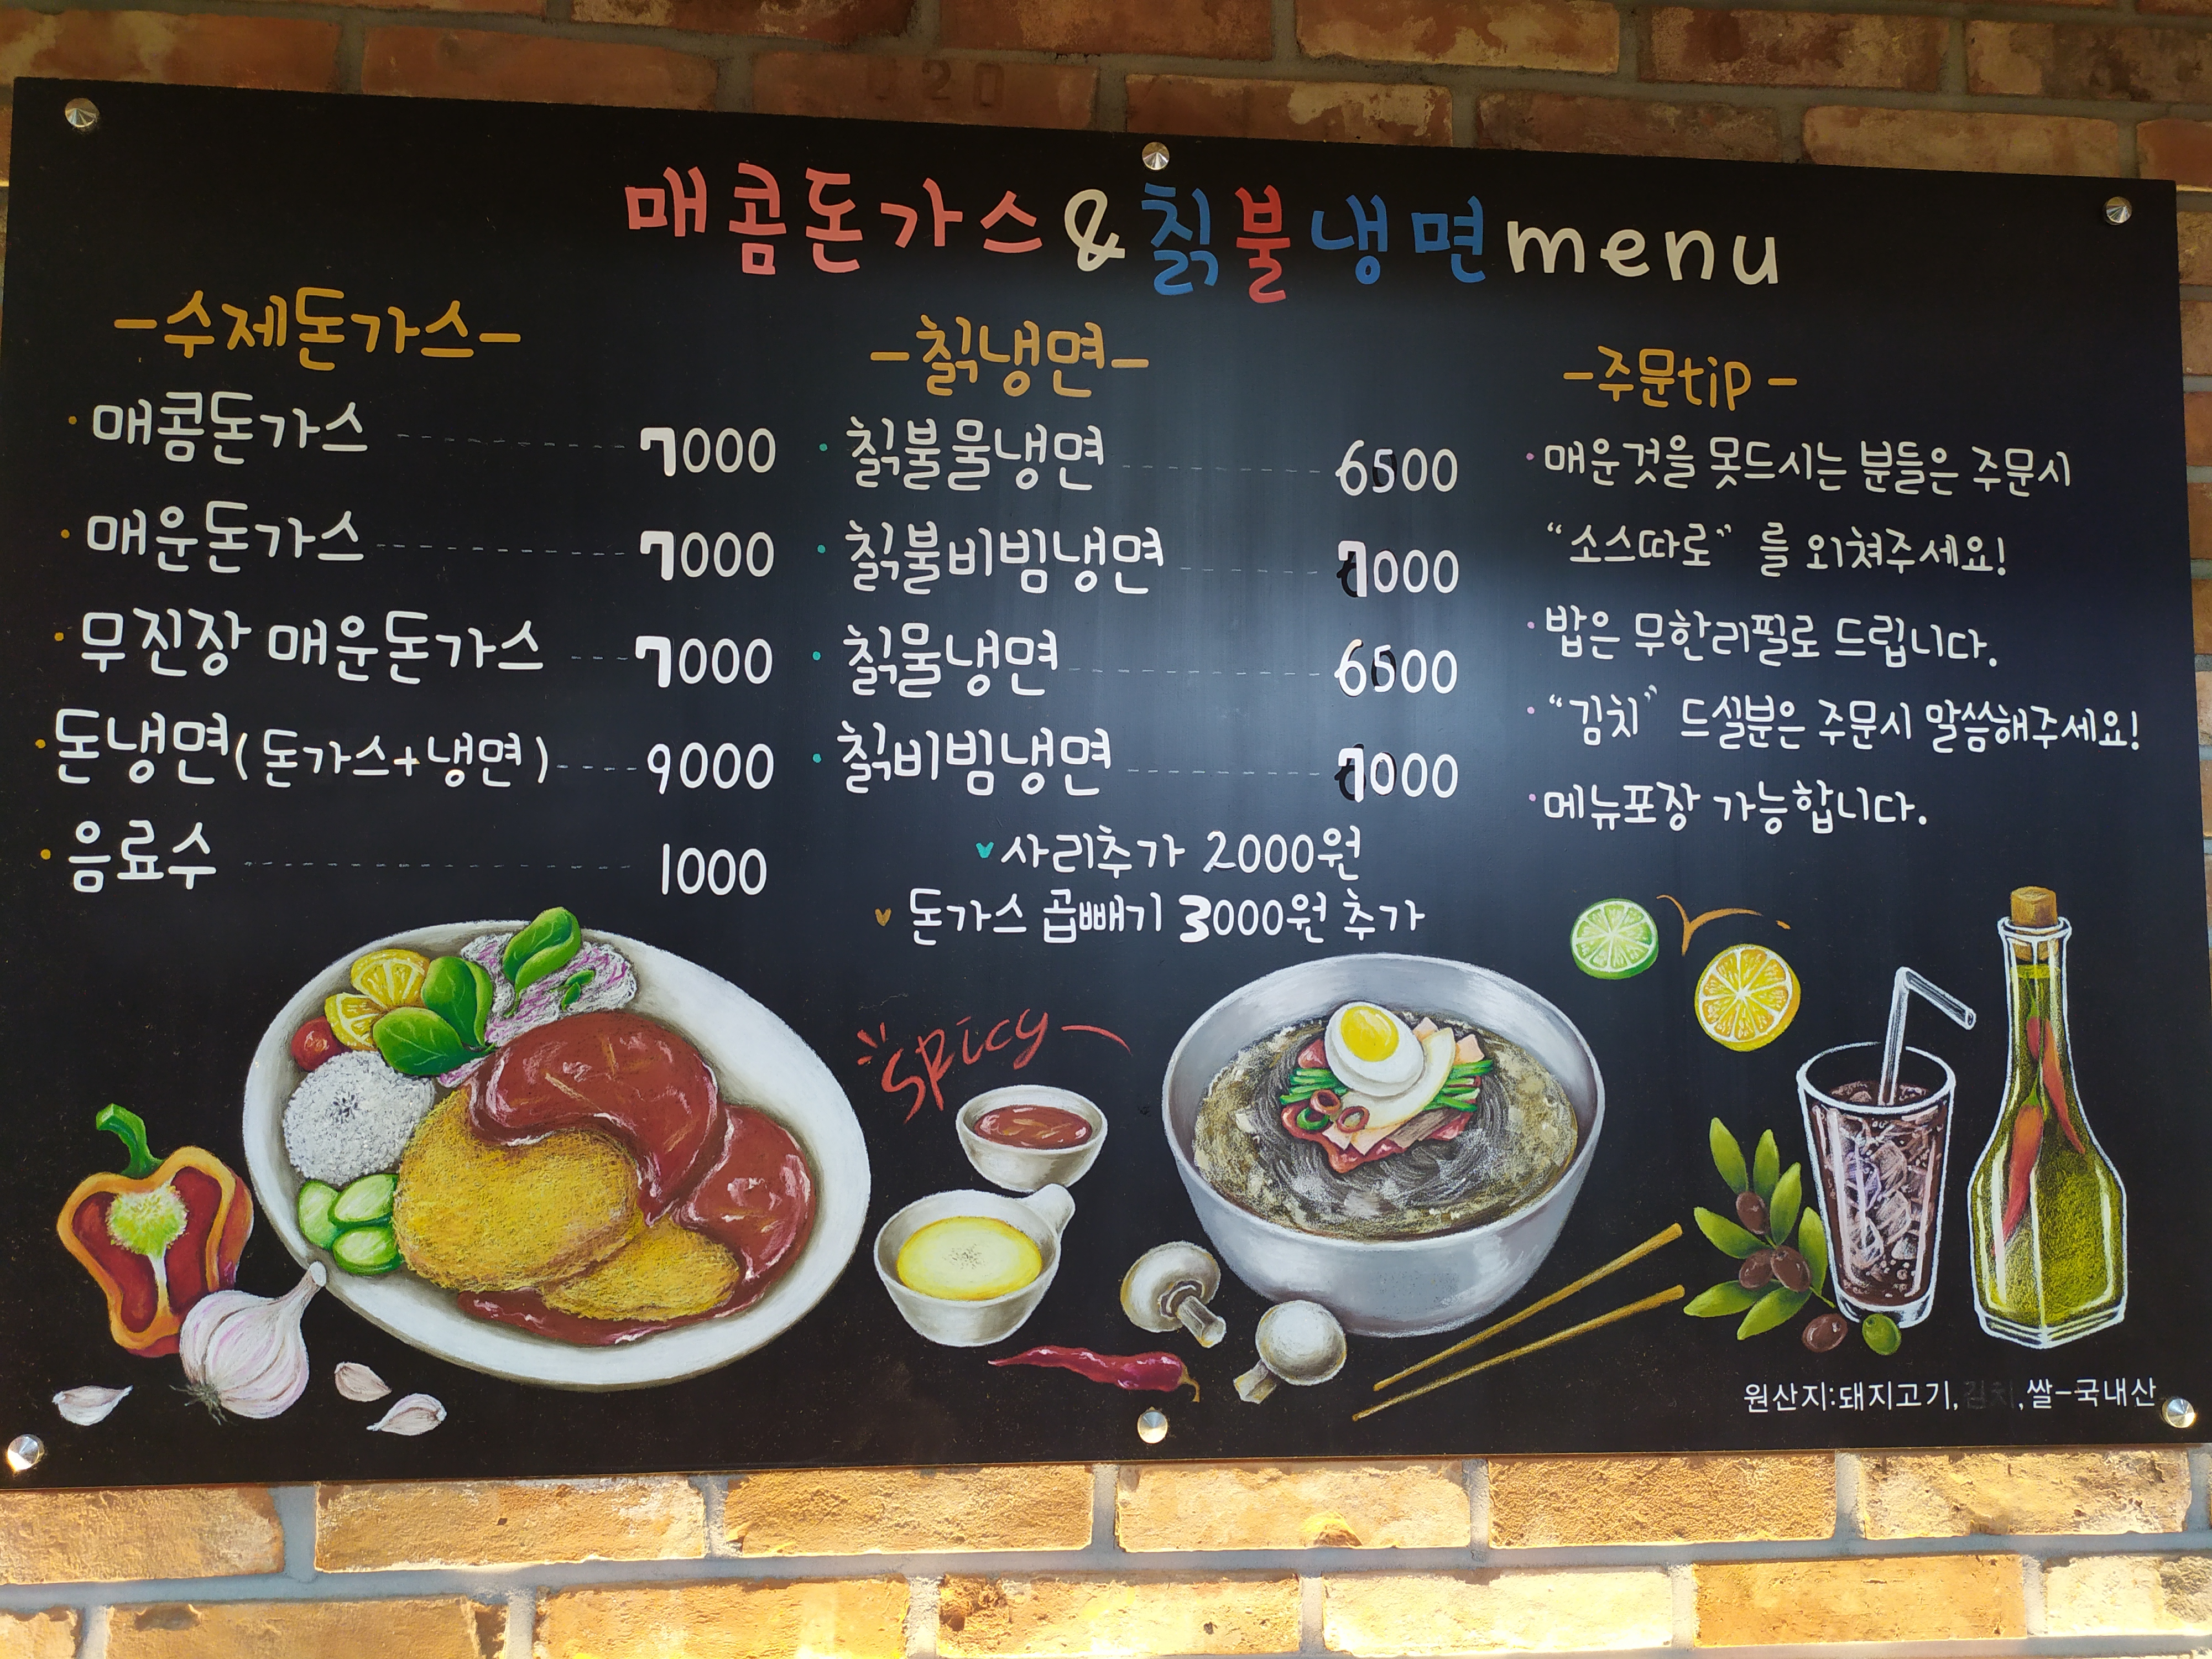 매콤돈가스&칡불냉면menu
-수제돈가스-
·매콤돈가스 7000
·매운돈가스 7000
·무진장 매운돈가스 7000
·돈냉면(돈가스+냉면) 9000
·음료수 1000
-칡냉면-
·칡불물냉면 6500
·칡불비빔냉면 7000
·칡물냉면 6500
·칡비빔냉면 7000
사리추가 2000원
돈가스 곱빼기 3000원 추가
-주문tip-
·매운것을 못드시는 분들은 주문시
“소스따로”를 외쳐주세요!
·밥은 무한리필로 드립니다.
·“김치” 드실분은 주문시 말씀해주세요!
·메뉴포장 가능합니다.
spicy
원산지:돼지고기,김치,쌀-국내산